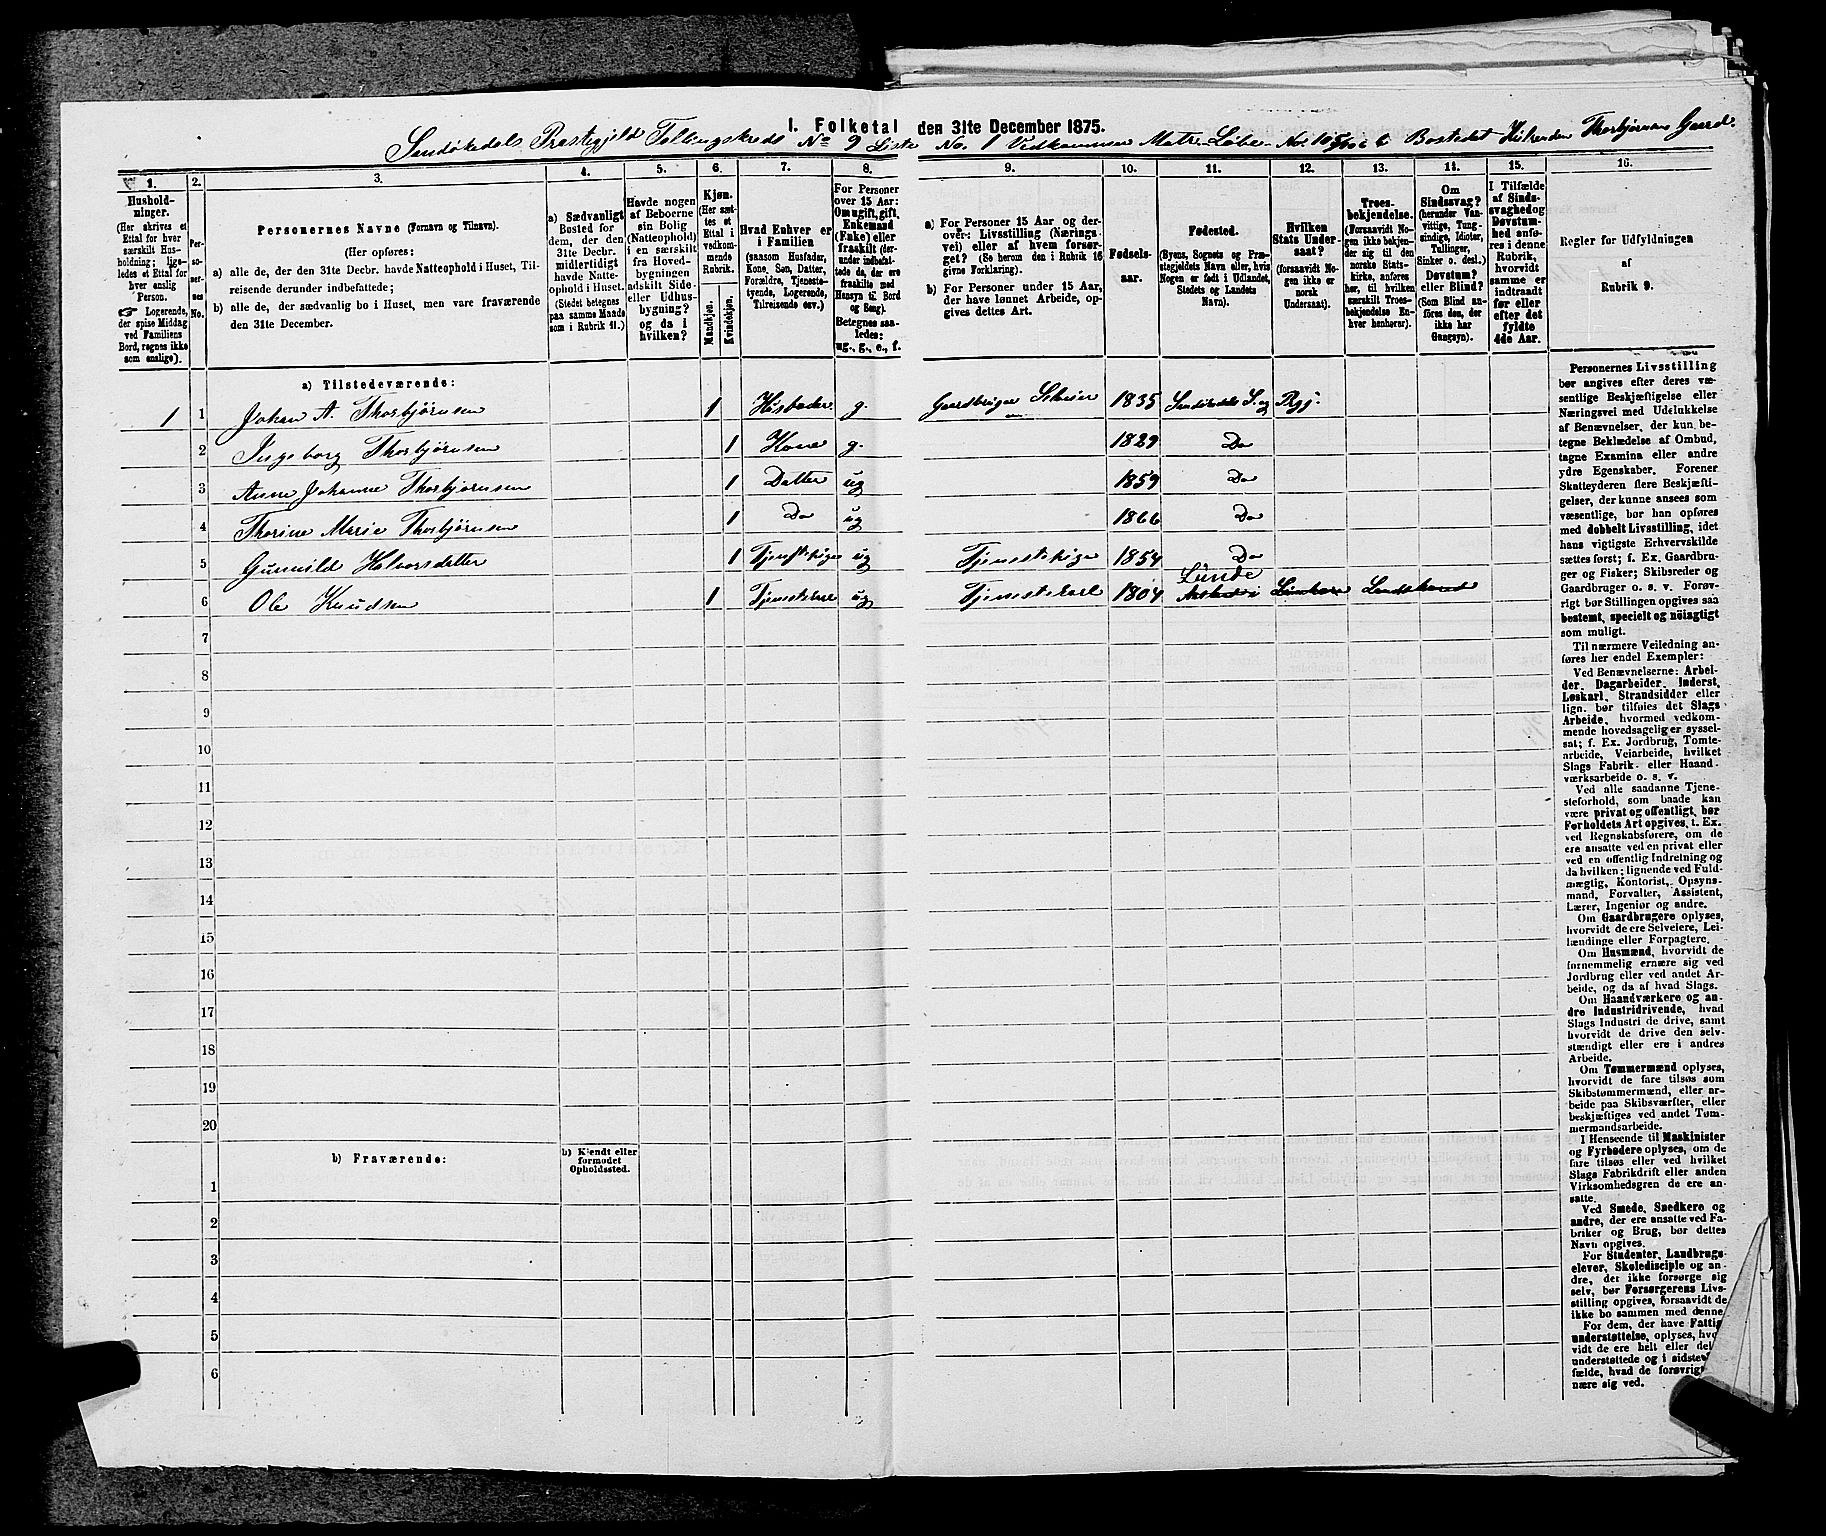 I. Folketal den 31te December 1875.
Sandøkedals Præstegjeld Tællingskreds No 9 Liste No. 1 Vedkommer Matr. Løbe-No. Bostedet Thorbjørnsens Gaard.
1.
Husholdninger.
(Her skrives et
Ettal for hver
særskilt Husholdning;
ligeledes et Ettal for
hver enslig
Person.
Logerende,
der spise Middag
ved Familiens
Bord, regnes ikke
som enslige).
2.
Personernes
No.
3.
Personernes Navne (Fornavn og Tilnavn).
(Her opføres:
a) alle de, der den 31te Decbr. havde Natteophold i Huset, Tilreisende
derunder indbefattede;
b) alle de, der sædvanlig bo i Huset, men vare fraværende
den 31te December.
4.
a) Sædvanligt
Bosted for
dem, der den
31te Decbr.
midlertidigt
havde Natteophold
i Huset.
(Stedet betegnes
paa samme Maade
som i Rubrik 11.)
5.
Havde nogen
af Beboerne
sin Bolig
(Natteophold)
i en særskilt
fra Hovedbygningen
adskilt Side-
eller Udhusbygning?
og da i
hvilken?
6.
Kjøn.
(Her sættes
et
Ettal i
vedkommende
Rubrik.
Mandkjøn.
Kvindekjøn.
7.
Hvad Enhver er
i Familien
(saasom Husfader,
Kone, Søn, Datter,
Forældre, Tjenestetyende,
Logerende,
Tilreisende osv.)
8.
For Personer
over 15 Aar:
Om ugift, gift,
Enkemand
(Enke) eller
fraskilt (derunder
indbefattede
de, der ere
fraskilte med
Hensyn til Bord
og Seng).
Betegnes saaledes:
ug., g., e., f.
9.
a) For Personer 15 Aar og derover:
Livsstilling (Næringsvei)
eller af hvem forsørget?
(Se herom den i Rubrik 16
givne Forklaring).
b) For Personer under 15 Aar,
der have lønnet Arbeide, opgives
dettes Art.
10.
Fødselsaar.
11.
Fødested.
(Byens, Sognets og Præstegjeldets
Navn eller, hvis
Nogen er født i Udlandet,
Stedets og Landets
Navn).
12.
Hvilken
Stats Undersaat?
(forsaavidt Nogen
ikke er
norsk
Undersaat).
13.
Troesbekjendelse.
(Forsaavidt Nogen
ikke bekjender
sig til den
norske Statskirke,
anføres
her, til hvilken
særskilt Troesbekjendelse
Enhver
henhører).
14.
Om
Sindssvag?
(herunder Vanvittige,
Tungsindige,
Idioter,
Tullinger,
Sinker o. desl.)
Døvstum?
eller Blind?
(Som Blind anføres
den, der
ikke har
Gangsyn).
15.
I Tilfælde
af Sindssvaghed
og
Døvstumhed
anføres
i denne
Rubrik,
hvorvidt
samme er
indtraadt
før eller
efter det
fyldte
4de Aar.
16.
Regler for Udfyldningen
af
Rubrik 9.
a) Tilstedeværende:
1 1 Johan A. Thorbjørnsen 1 Husfader g. Gaardbruger Selveier 1835 Sandøkedals S. og Prgj.
2 Ingeborg Thorbjørnsen 1 Kone g. 1829 Do
3 Anne Johanne Thorbjørnsen 1 Datter ug 1859 Do
4 Thorine Marie Thorbjørnsen 1 Do ug 1866 Do
5 Gunnild Halvorsdatter 1 Tjenstpige ug Tjenestepige 1854 Do
Lunde
6 Ole Knudsen 1 Tjenestekarl ug Tjenestekarl 1804
7
8
9
10
11
12
13
14
15
16
17
18
19
20
b) Fraværende:
b) Kjendt eller
formodet
Opholdssted.
1
2
3
4
5
6
Personernes Livsstilling
bør angives efter deres væsentlige
Beskjæftigelse eller
Næringsvei med Udelukkelse
af Benævnelser, der kun betegne
Beklædelse af Ombud,
tagne Examina eller andre
ydre Egenskaber. Forener
Skatteyderen flere Beskjæftigelser,
der kunne ansees som
væsentlige, bør han opføres
med dobbelt Livsstilling, idet
hans vigtigste Erhvervskilde
sættes først; f. Ex. Gaardbruger
og Fisker; Skibsreder og
Gaardbruger o. s. v. Forøvrigt
bør Stillingen opgives saa
bestemt, specielt og nøiagtigt
som muligt.
Til nærmere Veiledning anføres
her endel Exempler:
Ved Benævnelserne: Arbeider,
Dagarbeider, Inderst,
Løskarl, Strandsidder eller
lign. bør tilføies det Slags
Arbeide, hvormed vedkommende
hovedsagelig er sysselsat;
f. Ex. Jordbrug, Tomtearbeide,
Veiarbeide, hvilket
Slags Fabrik- eller Haandværksarbeide
o. s. v.
Ved alle saadanne Tjenesteforhold,
som baade kan
være privat og offentligt, bør
Forholdets Art opgives, f. Ex.
ved Regnskabsførere, om de
ere ansatte ved en privat eller
ved en offentlig Indretning og
da hvilken; lignende ved Fuldmægtig,
Kontorist, Opsynsmand,
Forvalter, Assistent,
Lærer, Ingeniør og andre.
Om Gaardbrugere oplyses,
hvorvidt de ere Selveiere, Leilændinge
eller Forpagtere.
Om Husmænd, hvorvidt de
fornemmelig ernære sig ved
Jordbrug eller ved andet Arbeide,
og da af hvad Slags.
Om Haandværkere og andre
Industridrivende, hvad
Slags Industri de drive, samt
hvorvidt de drive den selvstændigt
eller ere i andres
Arbeide.
Om Tømmermænd oplyses,
hvorvidt de fare tilsøs som
Skibstømmermænd, eller arbeide
paa Skibsværfter, eller
beskjæftiges ved andet Tømmermandsarbeide.
I Henseende til Maskinister
og Fyrbødere oplyses, om de
fare tilsøs eller ved hvilket
Slags Fabrikdrift eller anden
Virksomhedsgren de ere ansatte.
Ved Smede, Snedkere og
andre, der ere ansatte ved Fabriker
og Brug, bør dettes
Navn opgives.
For Studenter, Landbrugselever,
Skoledisciple og andre,
der ikke forsørge sig
selv, bør Forsørgerens Livsstilling
opgives, forsaavidt de
ikke bo sammen med denne.
For dem, der have Fattigunderstøttelse,
oplyses, hvorvidt
de ere helt eller delvis
understøttede og i sidste
fælde, hvad de forøvrigt
nære sig ved.